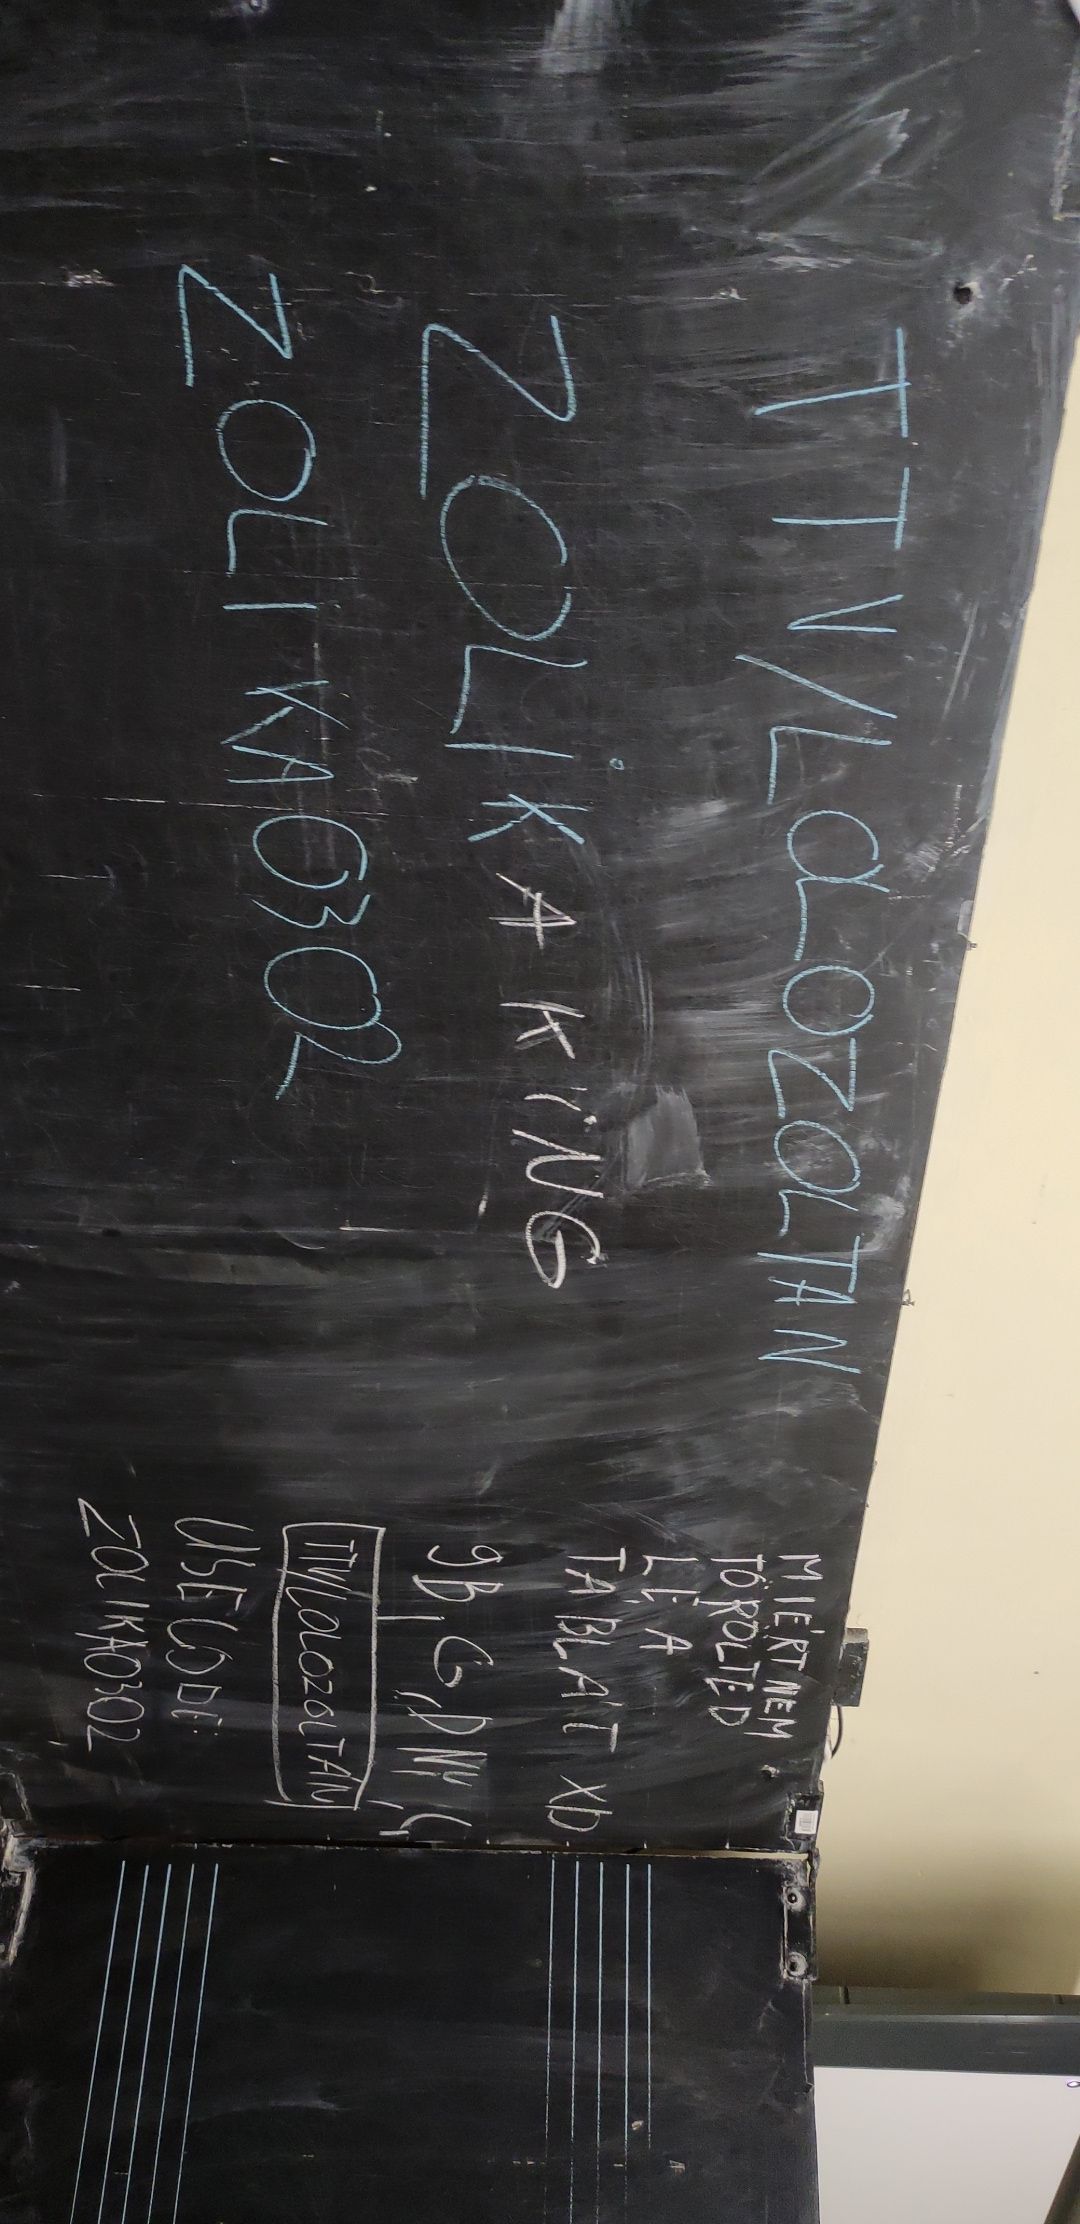 TTV/LOLOZOLTAN
ZOLIKA KING
ZOLIKA0302
MIÉRT NEM
TÖRÖLTED
LE A
TÁBLÁT XD
9B, G, DNY,
TTV/LOLOZOLTAN
USE CODE:
ZOLIKA0302